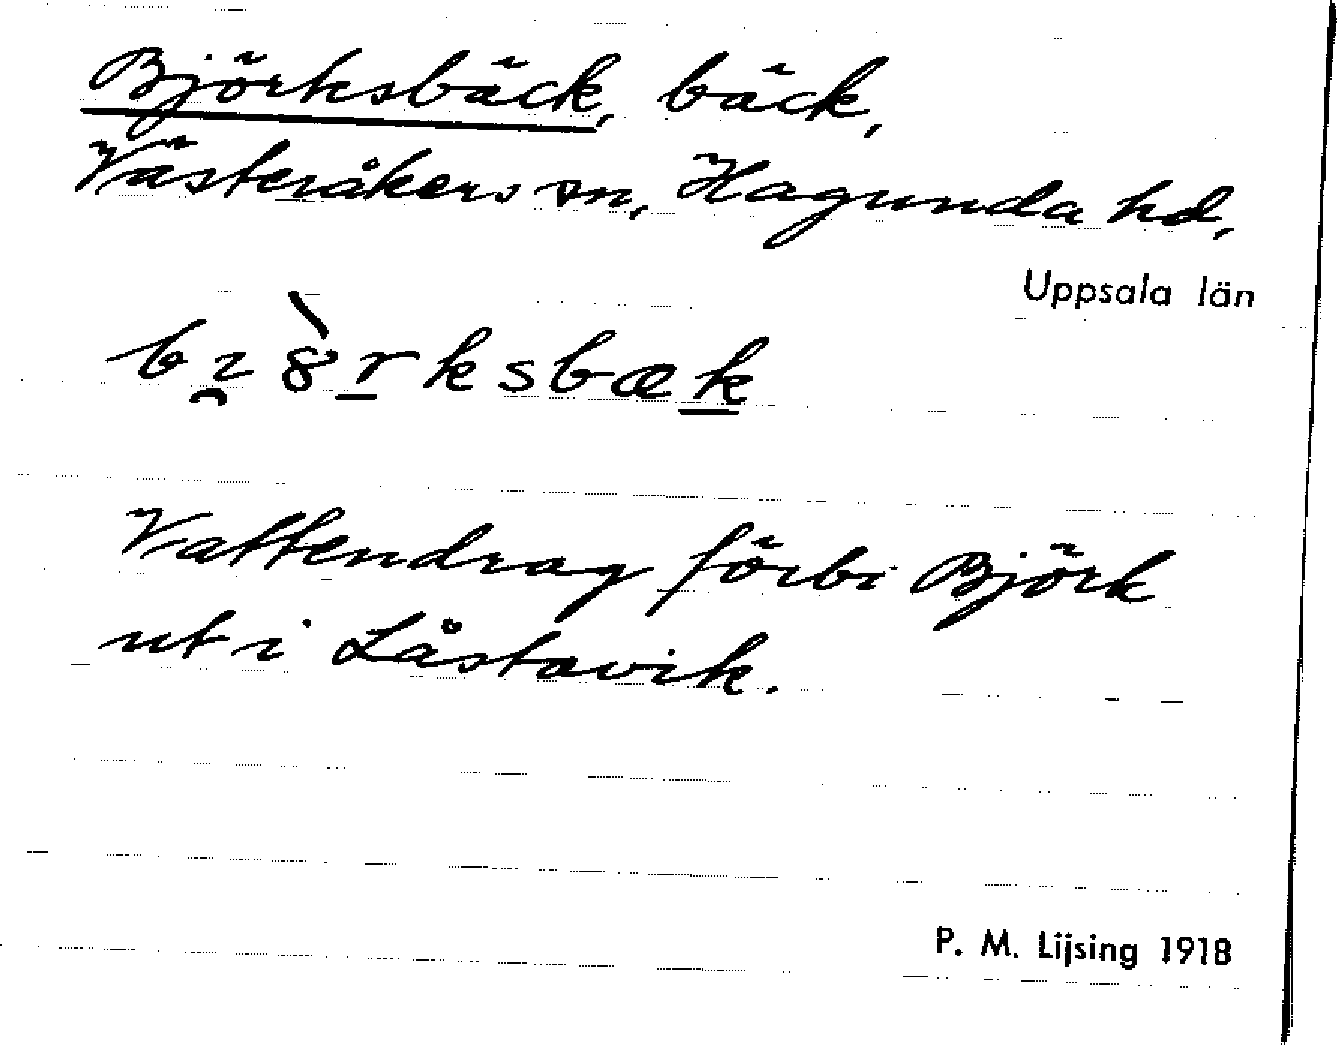 Björksbäck, bäck,
Västeråkers sn, Hagunda hd,
Uppsala län
bɪ̯8̀r̲ksbæk̲
Vattendrag förbi Björk
ut i Låstavik.
P. M. Lijsing 1918